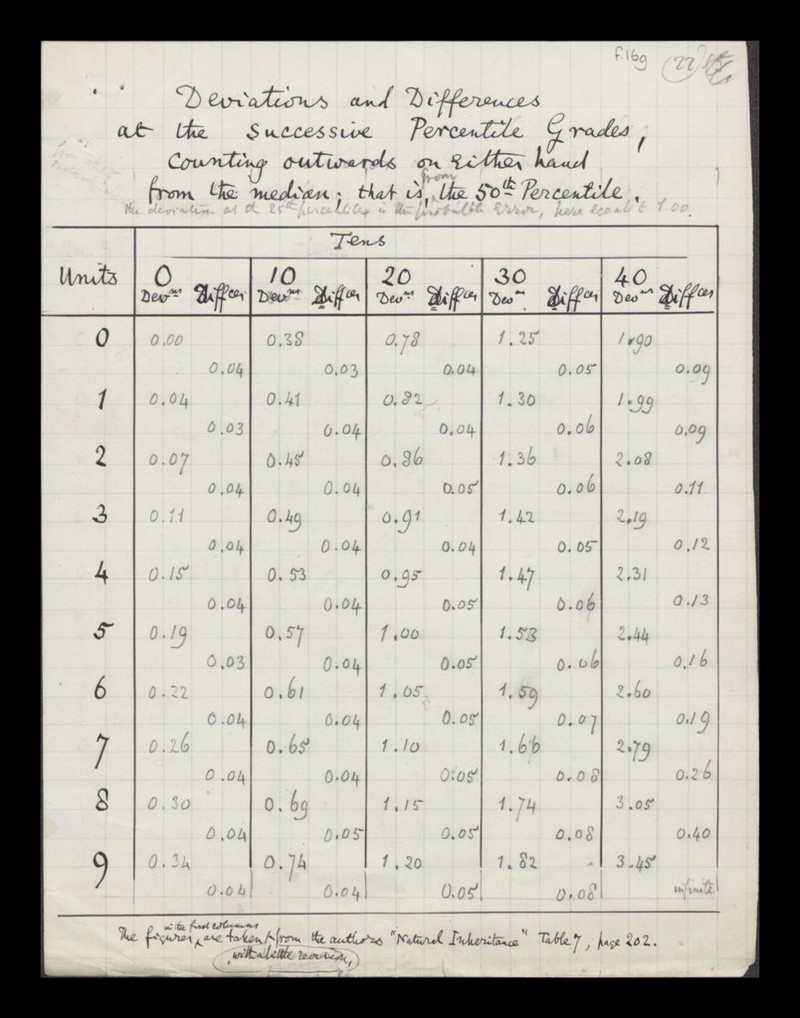 f.169 22
Deviations and Differences
at the Successive Percentile Grades,
Counting outwards on either hand
from
from the median; that is, the 50th Percentile.
the deviation at the 25th percentiles is the probable Error, here count't 1.00.
Tens
Units 0 10 20 30 40
Devns Diffces Devns Diffces Devns Diffces Devns Diffces Devns Diffces
0 0.00 0.38 0.78 1.25 1.90
0.04 0.03 0.04 0.05 0.09
1 0.04 0.41 0.82 1.30 1.99
0.03 0.04 0.04 0.06 0.09
2 0.07 0.45 0.86 1.36 2.08
0.04 0.04 0.05 0.06 0.11
3 0.11 0.49 0.91 1.42 2.19
0.04 0.04 0.04 0.05 0.12
4 0.15 0.53 0.95 1.47 2.31
0.04 0.04 0.05 0.06 0.13
5 0.19 0.57 1.00 1.53 2.44
0.03 0.04 0.05 0.06 0.16
6 0.22 0.61 1.05 1.59 2.60
0.04 0.04 0.05 0.07 0.19
7 0.26 0.65 1.10 1.66 2.79
0.04 0.04 0.05 0.08 0.26
8 0.30 0.69 1.15 1.74 3.05
0.04 0.05 0.05 0.08 0.40
9 0.34 0.74 1.20 1.82 3.45
0.04 0.04 0.05 0.08 infinite
in the first columns
The figures, are taken from the author's "Natural Inheritance" Table 7, page 202.
with a little revision,